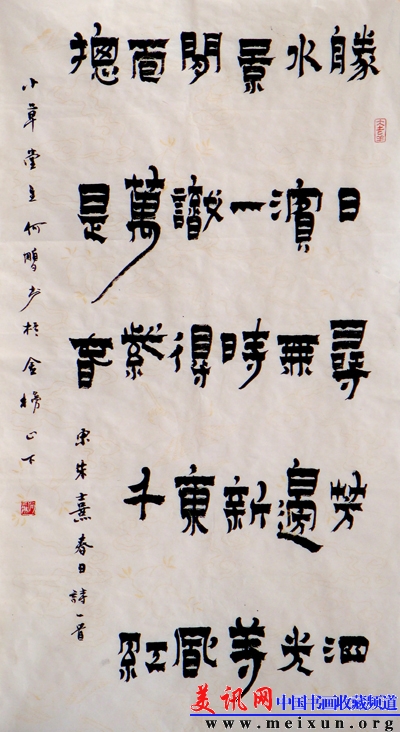 勝日尋芳泗
水濱無邊光
景一時新等
閒識得東風
面萬紫千紅
摠是春
宋朱熹春日詩一首
小草堂主何鵬书於金榜山下
美讯网 中国书画收藏频道
www.meixun.org